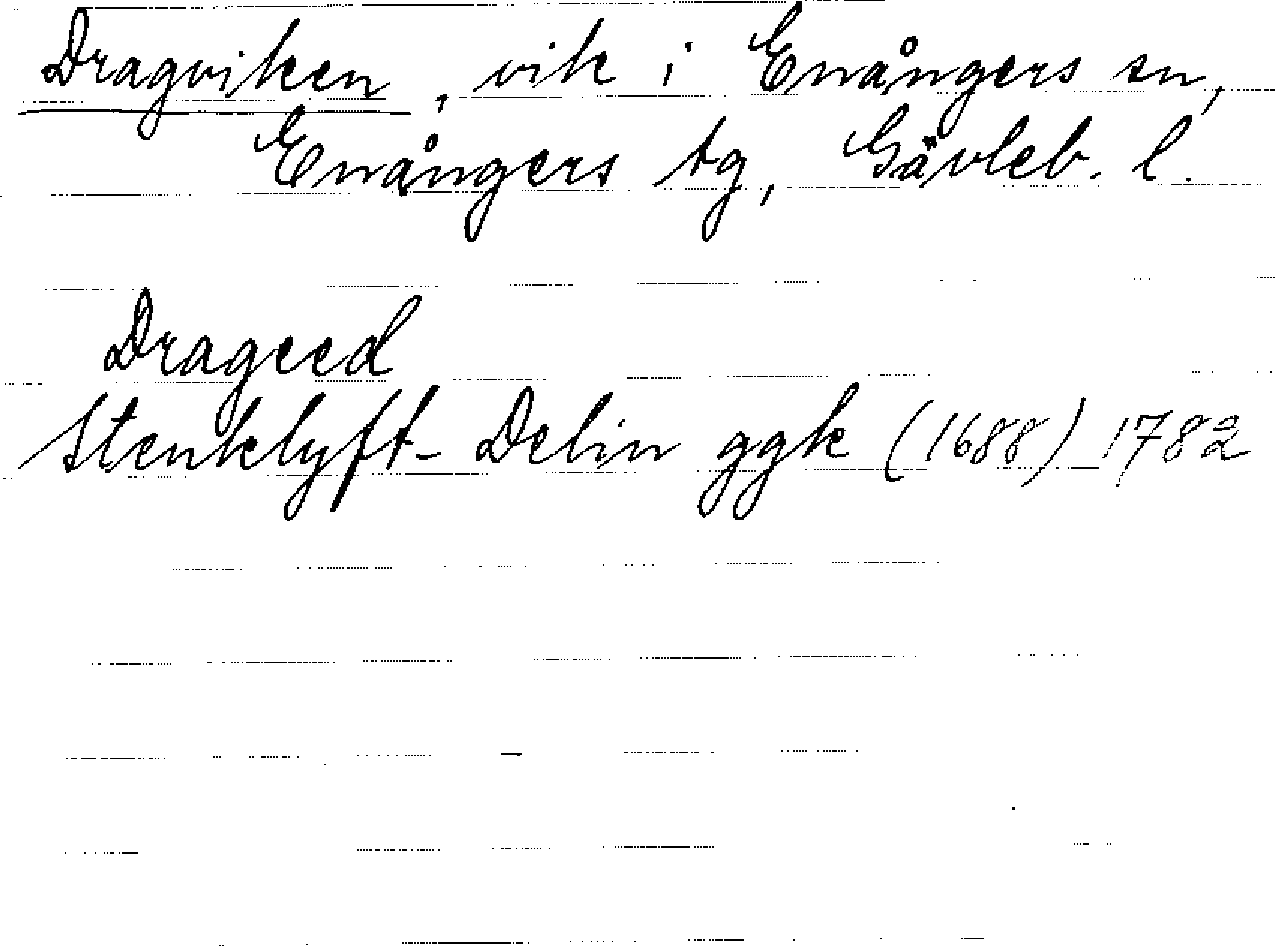 Dragviken, vik i Enångers sn,
Enångers tg, Gävleb. l.
Drageed
Stenklyft- Delin ggk (1688) 1782